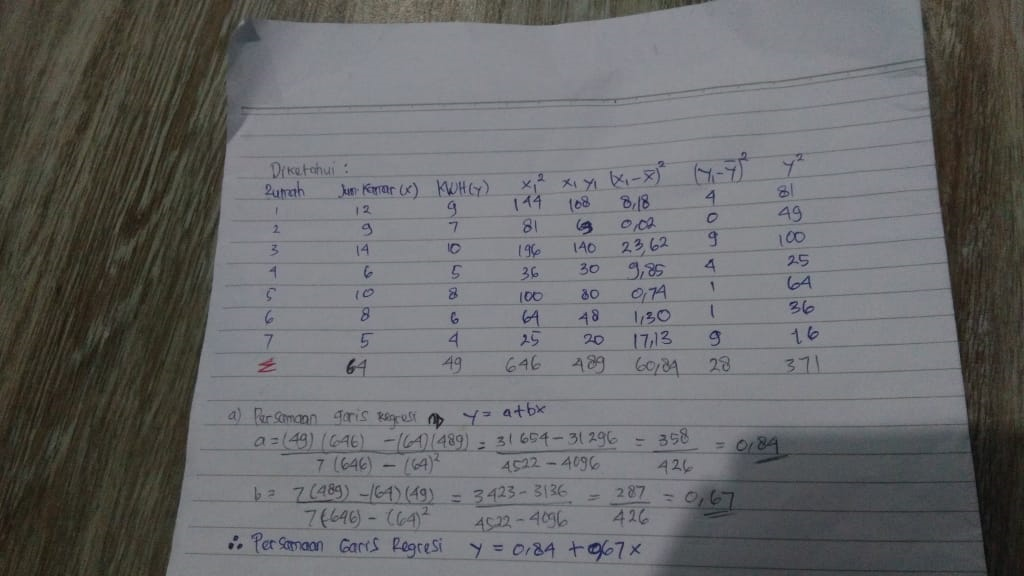 Diketahui :
Rumah Jum Kamar (x) KWH (y) x₁² x₁ y₁ (x₁-x̄)² (y₁-ȳ)² y²
1 12 9 144 108 8,18 4 81
2 9 7 81 63 0,02 0 49
3 14 10 196 140 23,62 9 100
4 6 5 36 30 9,85 4 25
5 10 8 100 80 0,74 1 64
6 8 6 64 48 1,30 1 36
7 5 4 25 20 17,13 9 16
Σ 64 49 646 489 60,84 28 371
a) Persamaan garis regresi ⇒ y = a+bx
a = (49) (646) - (64) (489) / 7 (646) - (64)² = 31 654 - 31 296 / 4522 - 4096 = 358 / 426 = 0,84
b = 7 (489) - (64) (49) / 7 (646) - (64)² = 3423 - 3136 / 4522 - 4096 = 287 / 426 = 0,67
∴ Persamaan Garis Regresi y = 0,84 + 0,67 x